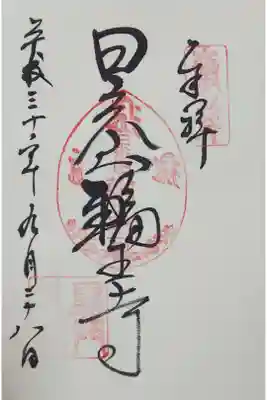 奉拝
日光山輪王寺
平成三十年九月二十八日